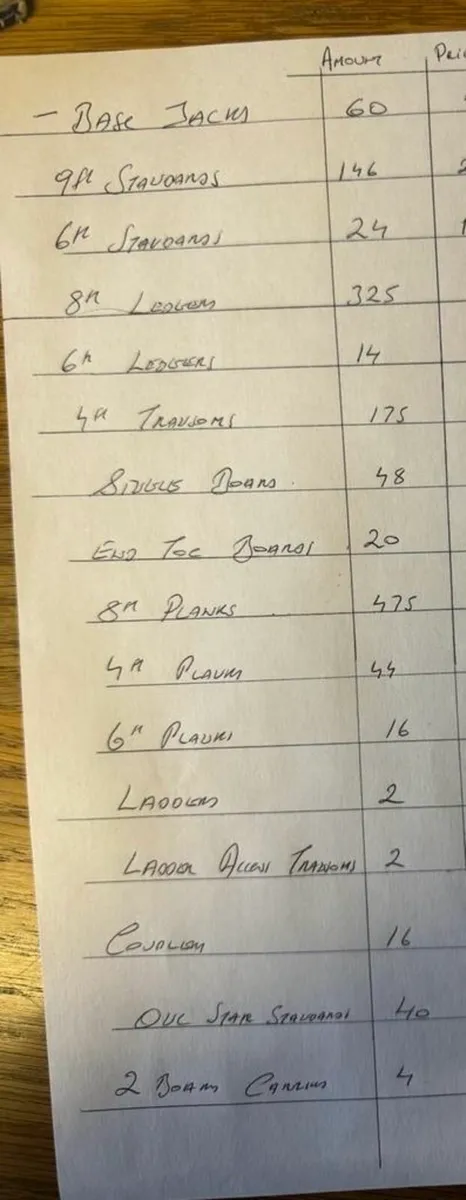 AMOUNT PRIC
- BASE JACKS 60
9ft STANDARDS 146 2
6ft STANDARDS 24 1
8ft LEDGERS 325
6ft LEDGERS 14
4ft TRANSOMS 175
SINGLE BOARD. 48
END TOE BOARDS 20
8ft PLANKS 475
4ft PLANKS 44
6ft PLANKS 16
LADDERS 2
LADDER ACCESS TRANSOMS 2
COUPLERS 16
ONE STAR STANDARDS 40
2 BOARD CARRIERS 4